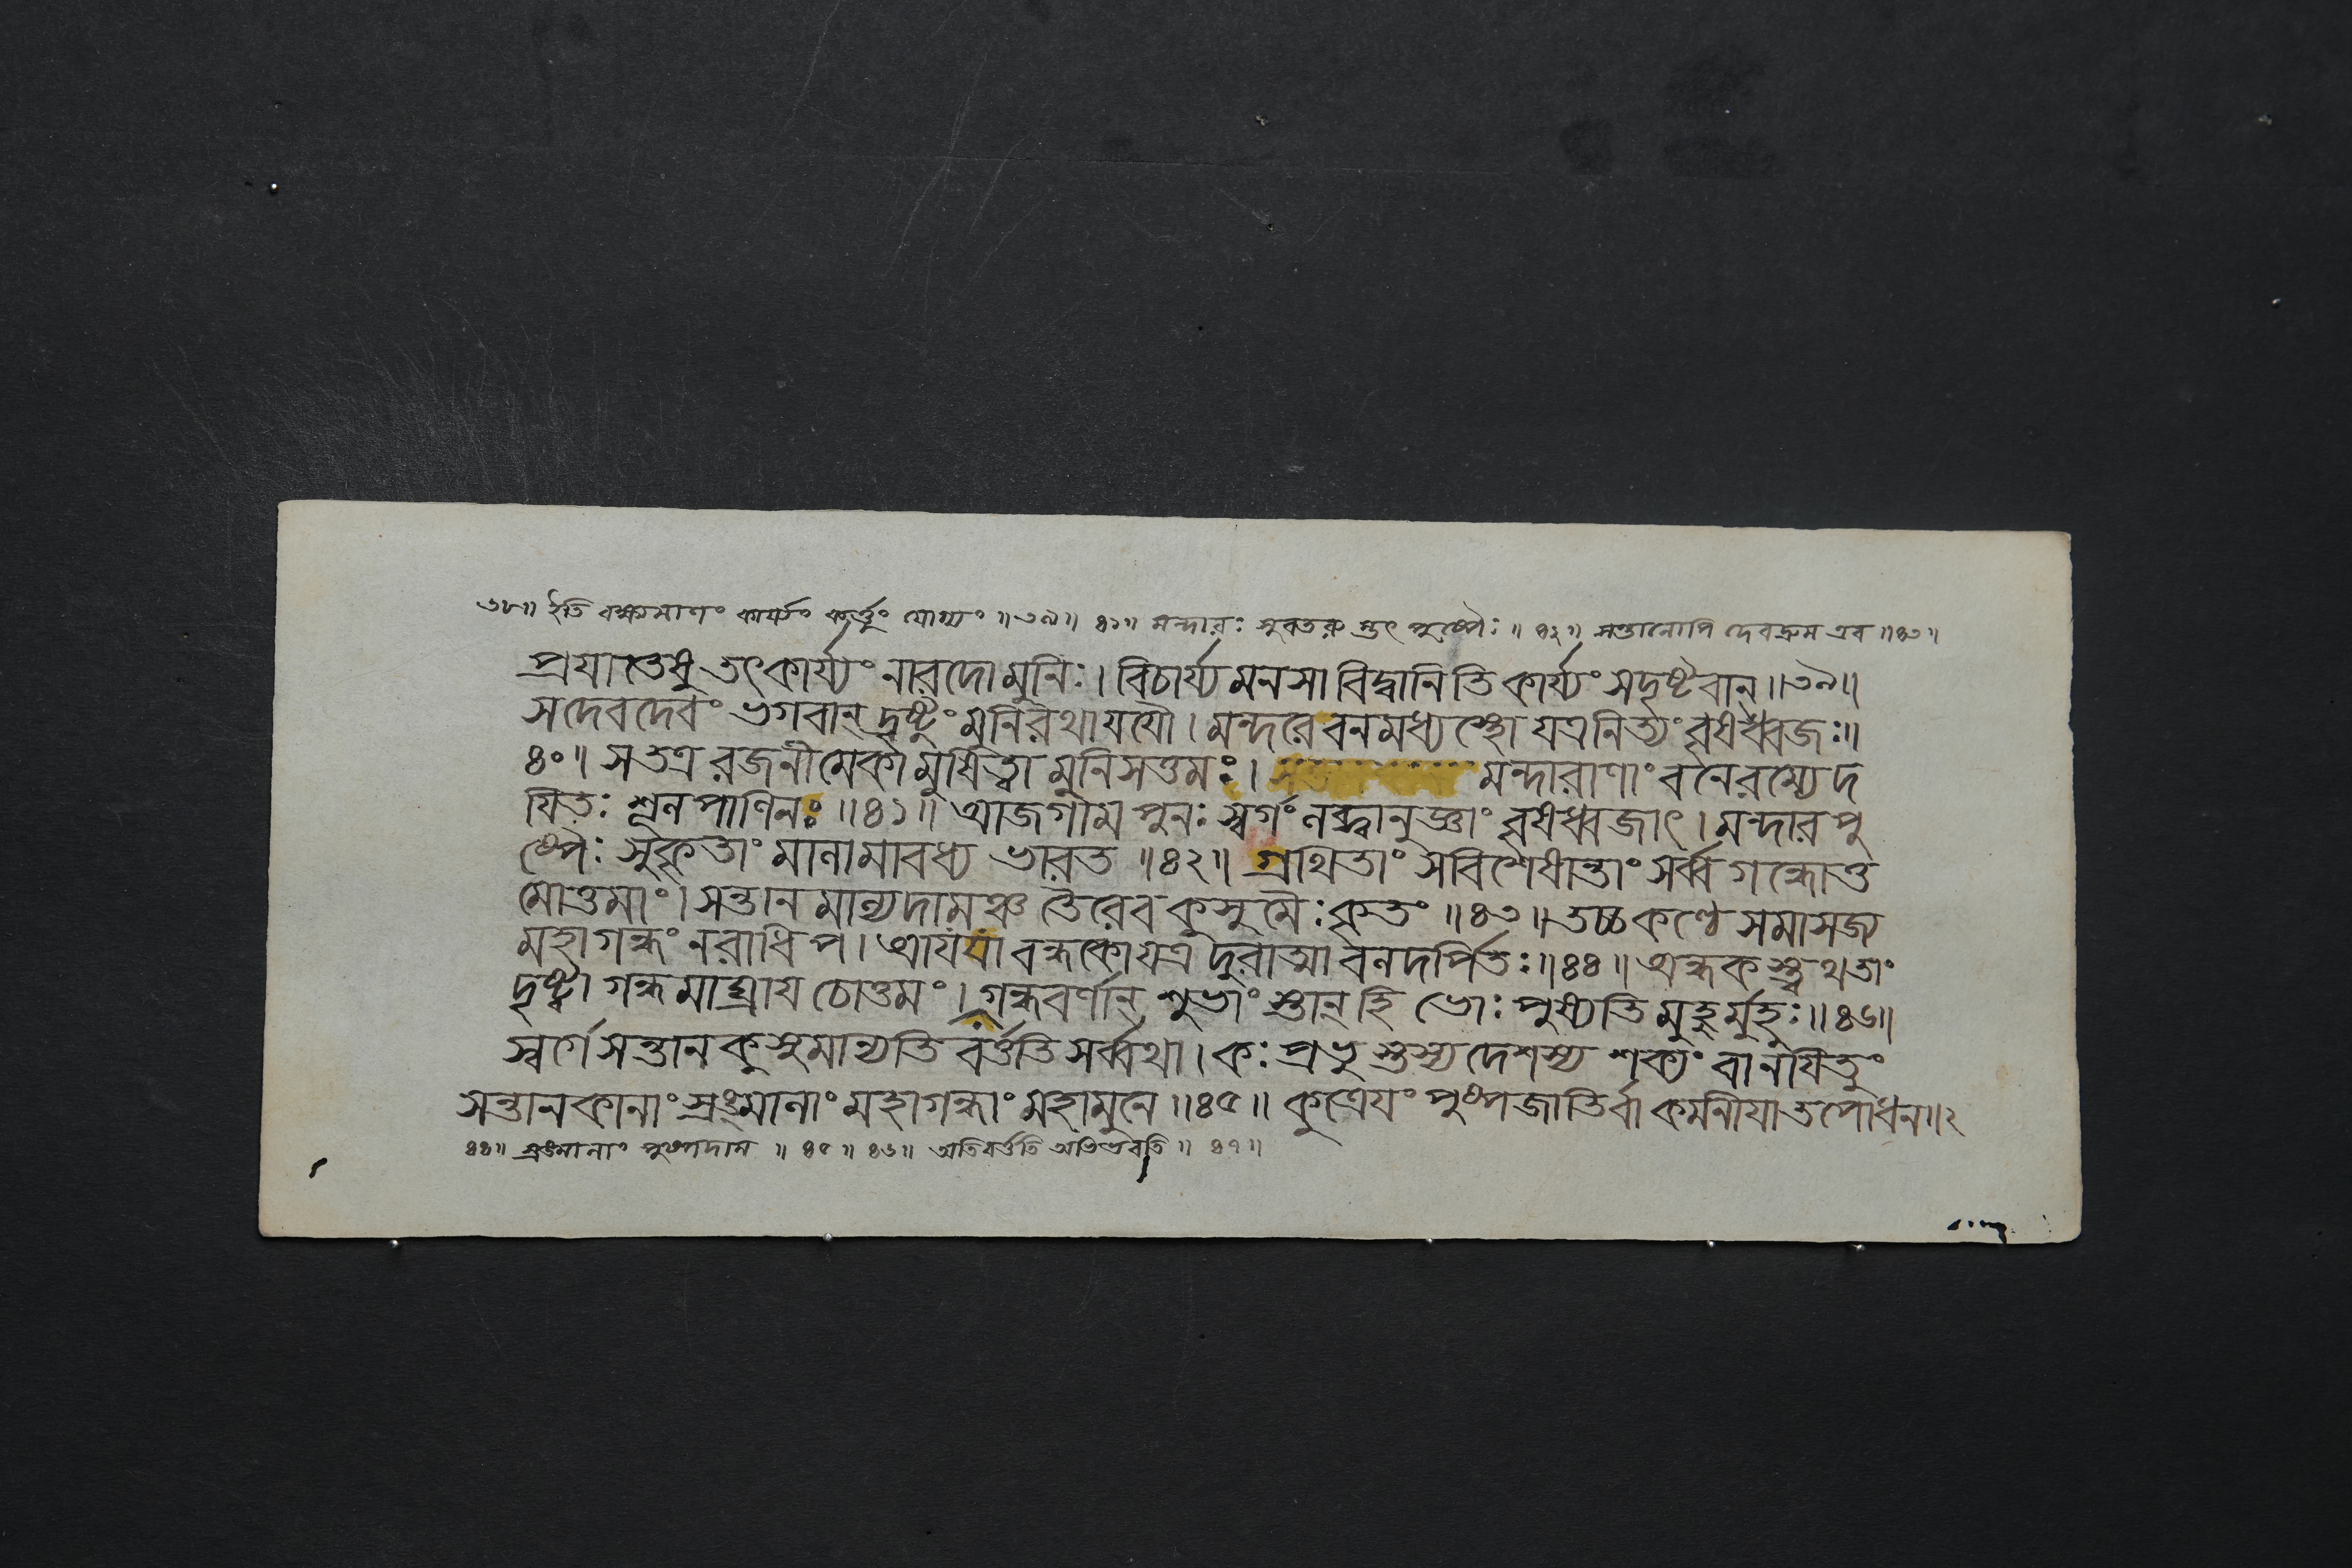 ৩৮॥ ইতি বক্ষ্যমাণং কার্য্যং কর্ত্তুং যোগ্যং ॥৩৯॥ ৪১॥ মন্দারঃ সুরতরু স্তৎ পুষ্পৈঃ ॥ ৪২॥ সন্তানোপি দেবদ্রুম এব ॥৪৩॥
প্রযাতেষু তৎকার্য্যং নারদো মুনিঃ। বিচার্য্য মনসা বিদ্বানিতি কার্য্যং সদৃষ্টবান্॥৩৯॥
স দেবদেবং ভগবান্ দ্রষ্টুং মুনিরথাযযৌ। মন্দরে বনমধ্যস্থো যত্র নিত্যং বৃষধ্বজঃ॥
৪০॥ স তত্র রজনীমেকা মুষিত্বা মুনিসত্তমঃ। মন্দারাণাং বনে রম্যে দ
যিতঃ শূলপাণিনঃ ॥৪১॥ আজগাম পুনঃ স্বর্গং লব্ধ্বানুজ্ঞাং বৃষধ্বজাৎ। মন্দারপু
ষ্পৈঃ সুকৃতাং মালামাবধ্য ভারত ॥৪২॥ গ্রথিতাং সবিশেষান্তাং সর্ব্বগন্ধোত্ত
মোত্তমাং। সন্তানমাল্যদামঞ্চ তৈরেব কুসুমৈঃ কৃতং ॥৪৩॥ তচ্চ কণ্ঠে সমাসজ্য
মহাগন্ধং নরাধিপ। আযযাবন্ধকো যত্র দুরাত্মা বলদর্পিতঃ॥৪৪॥ অন্ধকস্ত্বথ তাং
দৃষ্ট্বা গন্ধমাঘ্রায চোত্তমং। গন্ধবর্ণান্ শুভাং স্তান্ হি ভোঃ পুষ্যতি মুহুর্মুহুঃ॥৪৬॥
স্বর্গে সন্তানকুসুমান্যতি বর্ত্ততি সর্ব্বথা। কঃ প্রভুস্তস্য দেশস্য শক্যং বানযিতুং
সন্তানকানাং স্রঙ্মালাং মহাগন্ধাং মহামুনে ॥৪৫॥ কুত্রেযং পুষ্পজাতির্বা কমনীযা তপোধন॥২
৪৪॥ স্রঙ্মালাং পুষ্পদাম ॥ ৪৫॥ ৪৬॥ অতিবর্ত্ততি অভিভবতি ॥ ৪৭॥